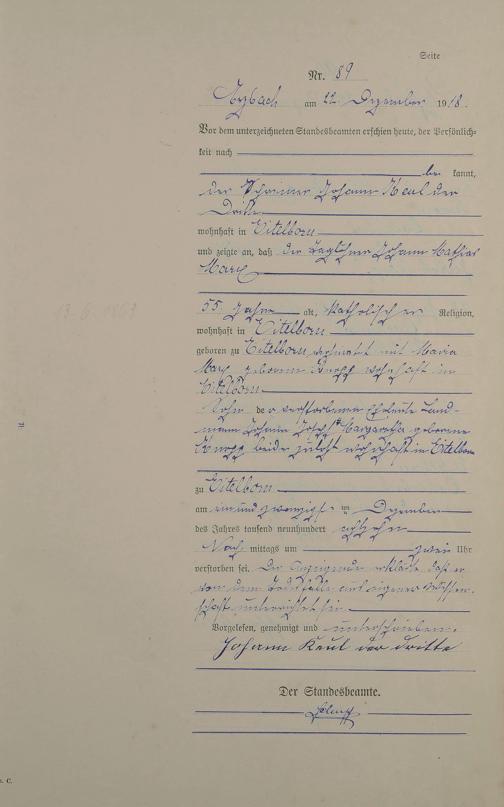 Seite
Nr. 89
Arzbach am 22. Dezember 1918.
Vor dem unterzeichneten Standesbeamten erschien heute, der Persönlich-
keit nach
be kannt,
der Schreiner Johann Keul der
Dritte
wohnhaft in Eitelborn
und zeigte an, daß der Taglöhner Johann Mathias
Marx
55 Jahre alt, katholischer Religion,
wohnhaft in Eitelborn
geboren zu Eitelborn, verheiratet mit Maria
Marx geborene Knopp wohnhaft in
Eitelborn
Sohn der verstorbenen Eheleute Land-
mann Johann Joseph Margaretha geborene
Knopp beide zuletzt wohnhaft in Eitelborn
zu Eitelborn
am einundzwanzigsten Dezember
des Jahres tausend neunhundert achtzehn
Nach mittags um zwei Uhr
verstorben sei. Der Anzeigende erklärte, daß er
von dem Todesfalle aus eigener Wissen-
schaft unterrichtet sei.
Vorgelesen, genehmigt und unterschrieben.
Johann Keul der dritte
Der Standesbeamte.